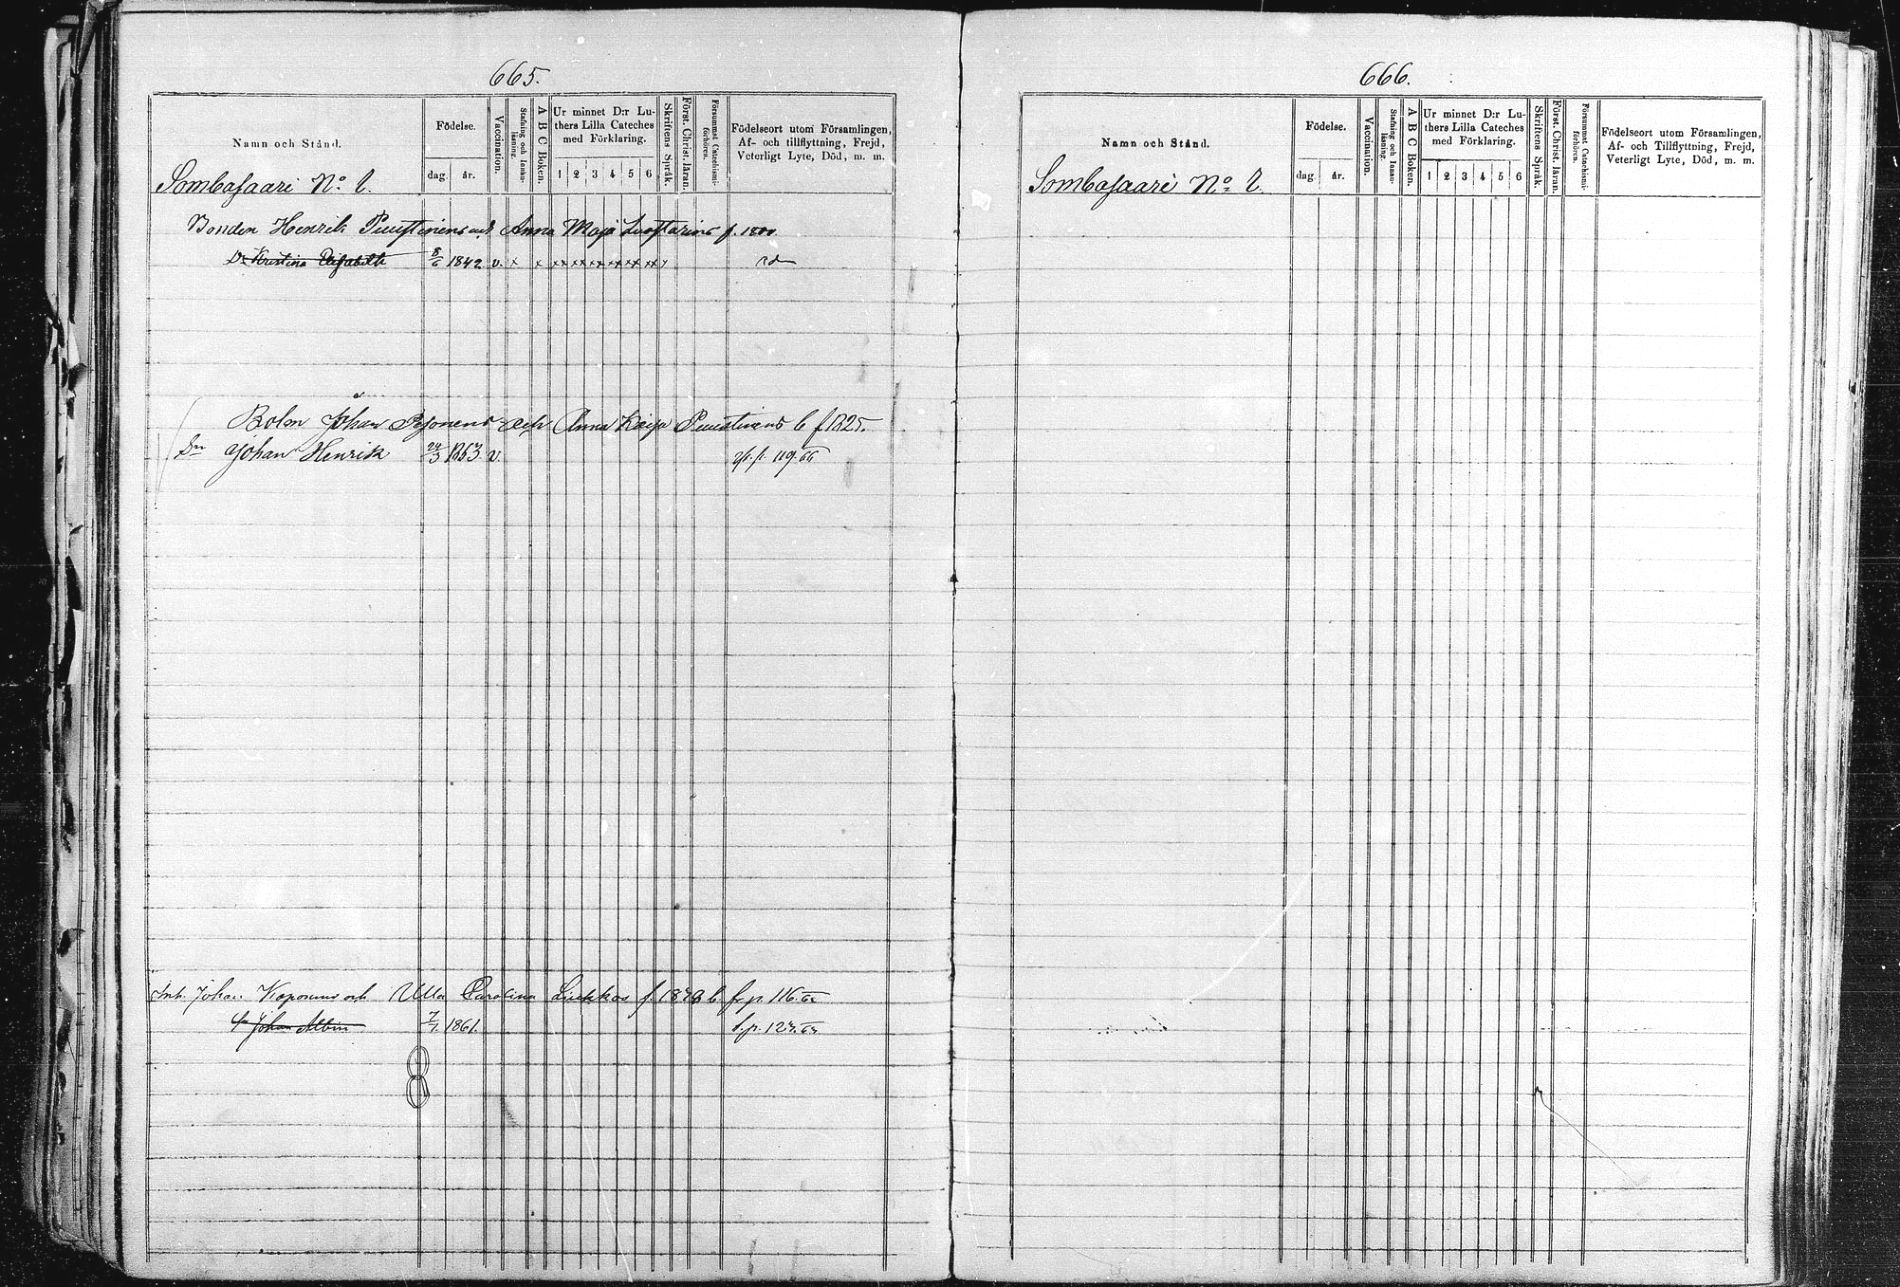 665.
Namn och Stånd.
Födelse.
dag. år.
Vaccination.
Stafning och Innan-läsning.
A B C Boken.
Ur minnet D:r Lu-
thers Lilla Cateches
med Förklaring.
1 2 3 4 5 6
Skriftens Språk.
Först. Christ. läran.
Försummat Catechismi-förhören.
Födelseort utom Församlingen,
Af- och tillflyttning, Frejd,
Veterligt Lyte, Död, m. m.
Sombasaari No 2.
Bonden Henrik Puustinens och Anna Maja f. 1800
Dr Kristina Elisabeth 8/6 1842 v. x x xx xx xx xx xx xx x
Johan Pesonens och Anna Kaisa Puustinens b f 1825.
Sn Johan Henrik 24/3 1853. v. 119.66
Inh. Johan Koposens och Ulla Carolina Liukkos f. 1838 b. fr p. 116. 62
Johan Albin 7/7. 1861. f. p. 127. 63
8
666.
Namn och Stånd.
Födelse.
dag år.
Vaccination.
Stafning och Innan-läsning.
A B C Boken.
Ur minnet D:r Lu-
thers Lilla Cateches
med Förklaring.
1 2 3 4 5 6
Skriftens Språk.
Först. Christ. läran.
Försummat Catechismi-förhören.
Födelseort utom Församlingen,
Af- och Tillflyttning, Frejd,
Veterligt Lyte, Död, m. m.
Sombasaari No 2.